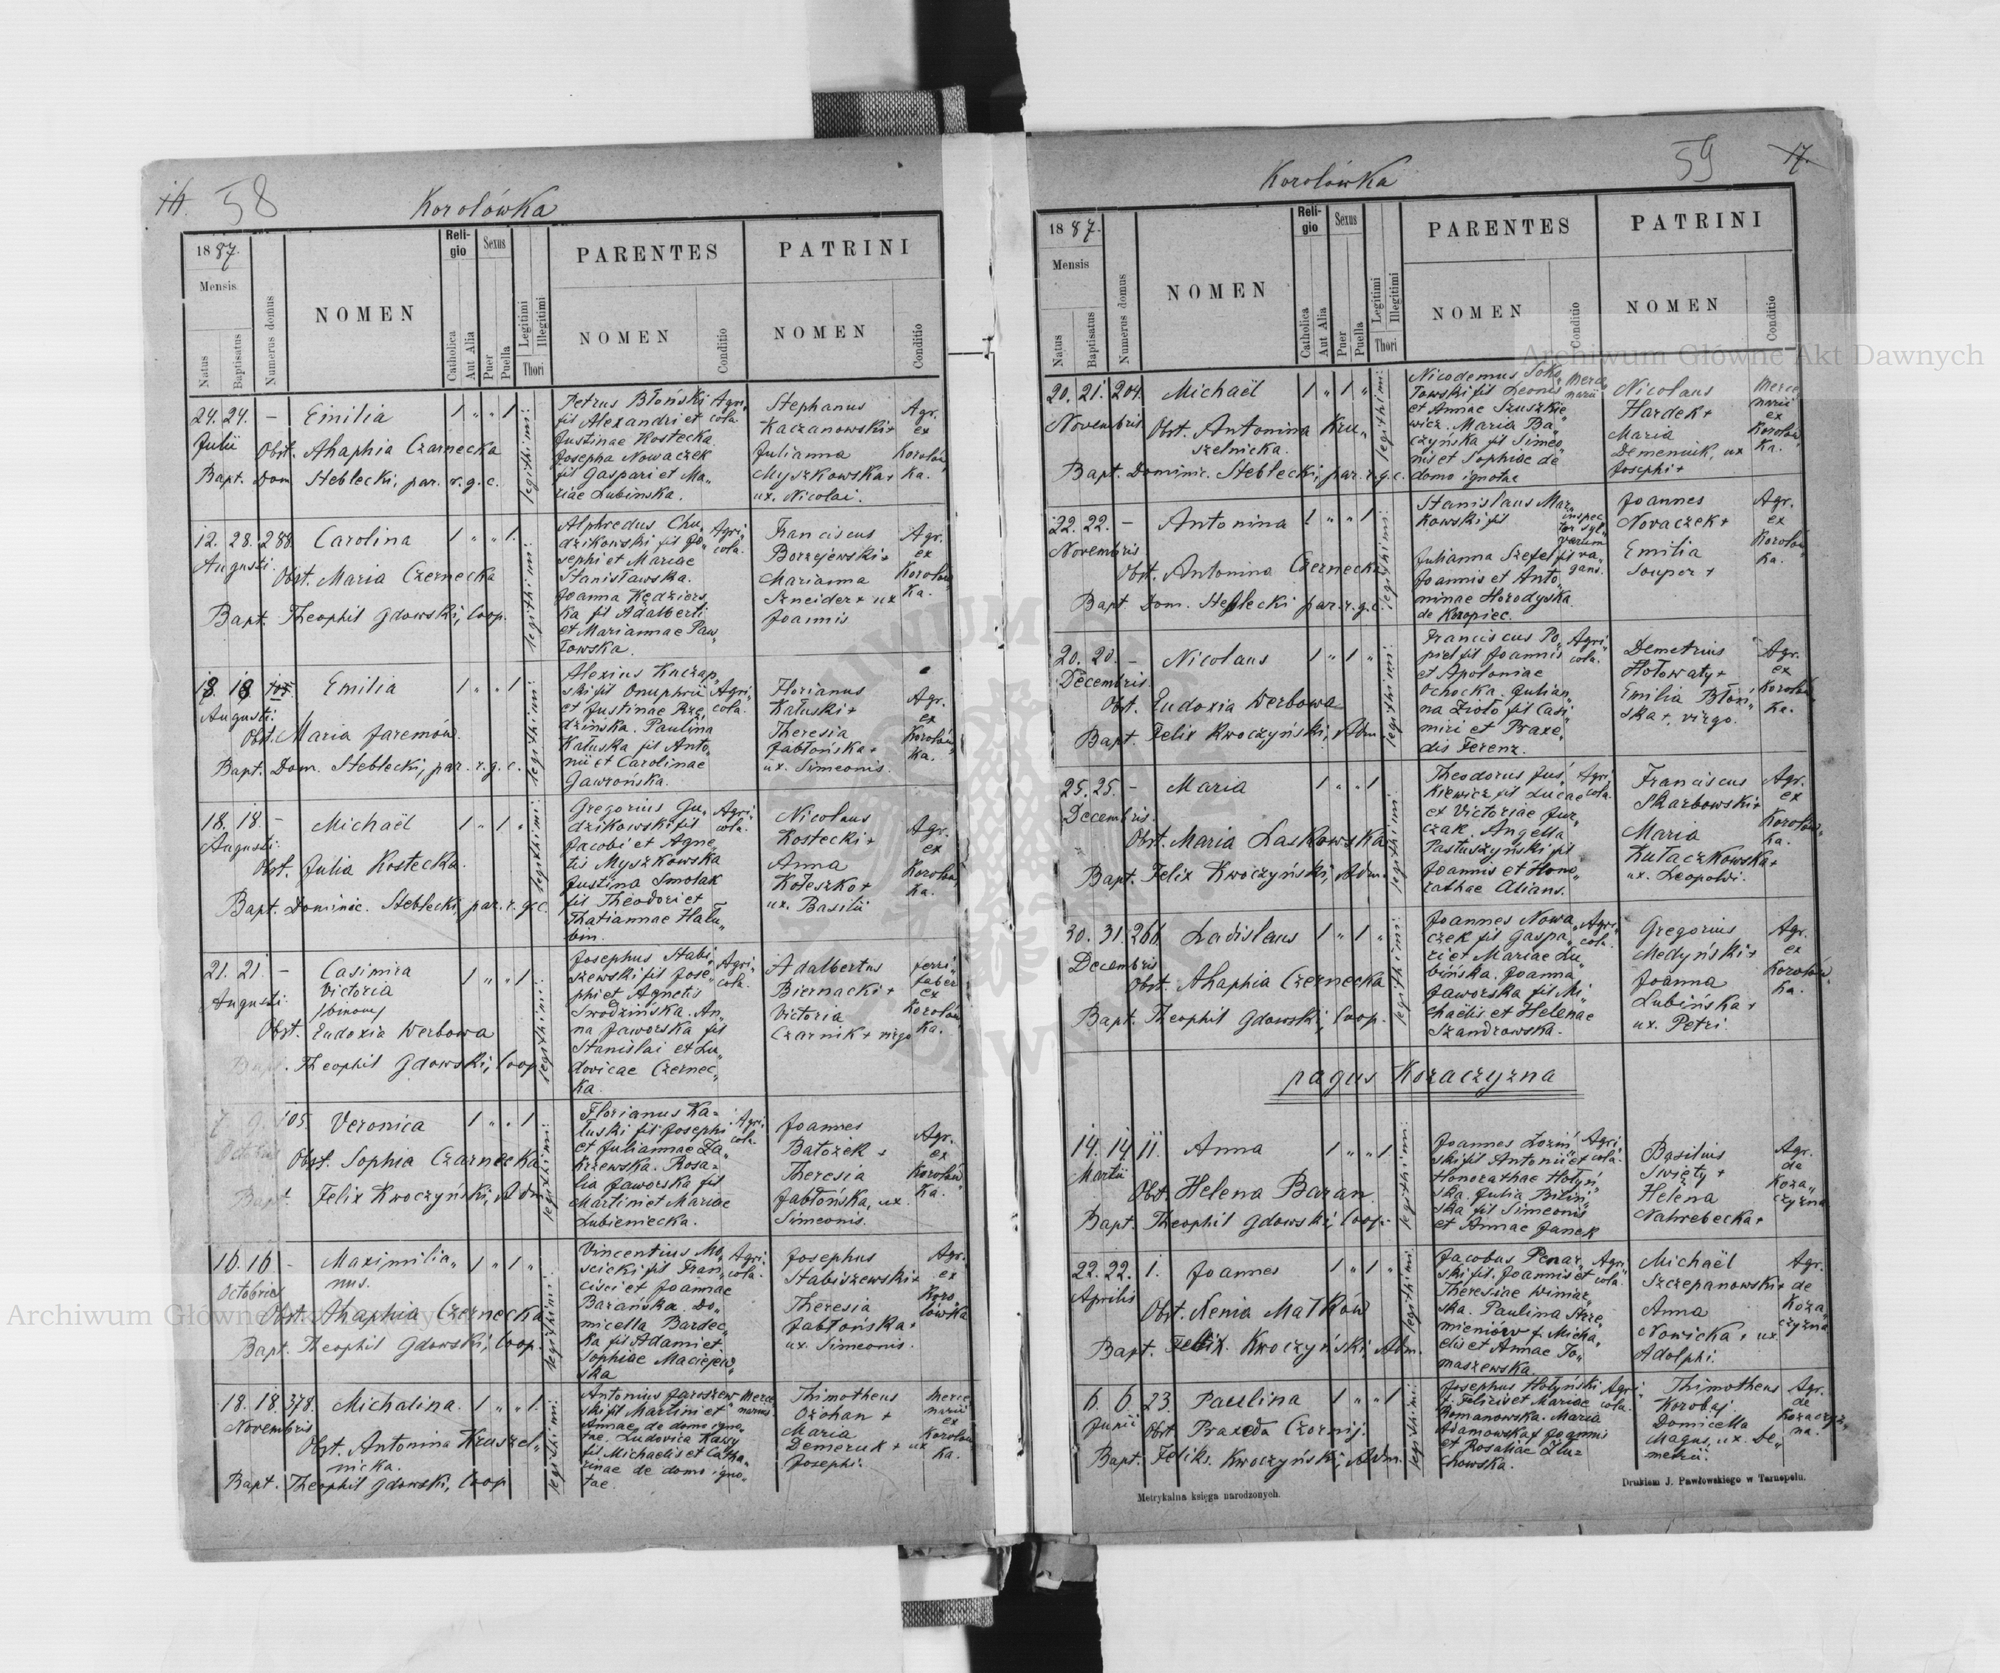 16. 58
Korolówka
1887.
Mensis
Natus
Baptisatus
Numerus domus
NOMEN
Religio
Catholica
Aut Alia
Sexus
Puer
Puella
Legitimi
Illegitimi
Thori
PARENTES
NOMEN
Conditio
PATRINI
NOMEN
Conditio
24. 24. - Emilia 1 " " 1
Julii
Obst. Ahaphia Czarnecka
Bapt. Dom Steblecki, par. r. g. c.
legithimi:
Petrus Błoński
fil Alexandri et
Justinae Kostecka
Josepha Nowaczek
fil Gaspari et Ma„
riae Lubinska.
Agri„
cola.
Stephanus
Kaczanowski +
Julianna
Myszkowska +
ux. Nicolai.
Agr.
ex
Korolów„
ka.
12. 28. 288. Carolina 1 " " 1.
Augusti.
Obst. Maria Czernecka
Bapt. Theophil Gdowski, Coop.
legithimi:
Alphredus Chu„
dzikowski fil Jo„
sephi et Mariae
Stanisławska.
Joanna Kędziers„
ka fil Adalberti
et Mariannae Paw„
łowska.
Agri„
cola.
Franciscus
Borzejewski +
Marianna
Szneider + ux
Joannis
Agr.
ex
Korolów„
ka.
18. 18 Emilia 1 " " 1
Augusti.
Obst. Maria Jaremów.
Bapt. Dom. Steblecki, par. r. g. c.
legithimi:
Alexius Kaczap„
ski fil Onuphrii
et Justinae Rze„
dzińska. Paulina
Kałuska fil Anto„
nii et Carolinae
Gawrońska.
Agri„
cola.
Florianus
Kałuski +
Theresia
Jabłońska +
ux. Simeonis.
Agr.
ex
Korolów„
ka.
18. 18. - Michaël 1 " 1 "
Augusti.
Obst. Julia Kostecka.
Bapt. Dominic. Steblecki, par. r. g. c.
legithimi:
Gregorius Gu„
dzikowski fil
Jacobi et Agne„
tis Myszkowska
Justina Smolak
fil Theodori et
Thatiannae Hału„
bin.
Agri„
cola.
Nicolaus
Kostecki +
Anna
Kołeszko +
ux. Basilii
Agr.
ex
Korolów„
ka.
21. 21. - Casimira 1 " " 1
Victoria
/binom/
Augusti.
Obst. Eudoxia Werbowa
Bapt. Theophil Gdowski, Coop.
legithimi:
Josephus Stabi„
szewski fil Jose„
phi et Agnetis
Swodzińska. An„
na Jaworska fil
Stanislai et Lu„
dovicae Czernec„
ka.
Agri„
cola.
Adalbertus
Biernacki +
Victoria
Czarnik + virgo
ferri„
faber
ex
Korolów„
ka.
7. 9. 105. Veronica 1 " " 1
Obst. Sophia Czarnecka
Bapt. Felix Kwoczyński, Adm.
legithimi:
Florianus Ka=
łuski fil Josephi
et Juliannae Za„
krzewska. Rosa=
lia Jaworska fil
Martini et Mariae
Lubieniecka.
Agri„
cola.
Joannes
Batożek +
Theresia
Jabłońska, ux.
Simeonis.
Agr.
ex
Korolów„
ka.
16. 16 - Maximilia„ 1 " 1 "
nus.
Octobris
Obst. Ahaphia Czernecka
Bapt. Theophil Gdowski, Coop.
legithimi:
Vincentius Mo„
scicki fil Fran„
cisci et Joannae
Barańska. Do„
micella Bardec„
ka fil Adami et
Sophiae Maciejew„
ska
Agri„
cola.
Josephus
Stabiszewski +
Theresia
Jabłońska +
ux. Simeonis.
Agr.
ex
Koro„
lówka
18. 18. 378. Michalina. 1 " " 1.
Novembris
Obst. Antonina Kruszel„
nicka.
Bapt. Theophil Gdowski, Coop
legithimi:
Antonius Jaroszew„
ski fil Martini et
Annae de domo igno„
tae. Ludovica Kawy
fil Michaelis et Catha„
rinae de domo igno„
tae.
Merce„
narius.
Thimotheus
Ożohan +
Maria
Demeruk + ux
Josephi.
Merce„
narii
ex
Korolów„
ka.
59 17.
Korolówka
1887.
Mensis
Natus
Baptisatus
Numerus domus
NOMEN
Religio
Catholica
Aut Alia
Sexus
Puer
Puella
Legitimi
Illegitimi
Thori
PARENTES
NOMEN
Conditio
PATRINI
NOMEN
Conditio
20. 21. 204. Michaël 1 " 1 "
Novembris
Obst. Antonina Kru„
szelnicka.
Bapt. Dominic. Steblecki, par. r. g. c.
legithimi:
Nicodemus Soko„
łowski fil Leonis
et Annae Szuszkie„
wicz. Maria Ba„
czyńska fil Simeo„
nis et Sophiae de
domo ignotae
Merce„
narii
Nicolaus
Hardek +
Maria
Demeniuk, ux
Josephi +
Merce„
narii
ex
Korolów„
ka.
22. 22. - Antonina 1 " " 1
Novembris
Obst. Antonina Czernecka
Bapt. Dom. Steblecki par. r. g. c.
legithimi:
Stanislaus Mar„
kowski fil
Julianna Szefel fil
Joannis et Anto„
ninae Horodyska
de Koropiec.
inspec„
tor syl„
varum
va„
gans.
Joannes
Novaczek +
Emilia
Souper +
Agr.
ex
Korolów„
ka.
20. 20. - Nicolaus 1 " 1 "
Decembris.
Obst. Eudoxia Werbowa
Bapt. Felix Kwoczyński, Adm.
legithimi:
Franciscus Po„
piel fil Joannis
et Apoloniae
Ochocka. Julian„
na Zioło fil Casi„
miri et Praxe„
dis Ferenz.
Agri„
cola.
Demetrius
Hołowaty +
Emilia Błoń„
ska +, virgo.
Agr.
ex
Korolów„
ka.
25. 25. - Maria 1 " " 1
Decembris.
Obst. Maria Laskowska
Bapt. Felix Kwoczyński, Adm.
legithimi:
Theodorus Juś„
kiewicz fil Lucae
et Victoriae Jur„
czak. Angella
Pastuszyński fil
Joannis et Hono„
rathae Alians.
Agri„
cola.
Franciscus
Skarbowski +
Maria
Kułaczkowska +
ux. Leopoldi.
Agr.
ex
Korolów„
ka.
30. 31. 266. Ladislaus 1 " 1 "
Decembris
Obst. Ahaphia Czernecka
Bapt. Theophil Gdowski, Coop.
legithimi:
Joannes Nowa„
czek fil Gaspa„
ri et Mariae Lu„
bińska. Joanna
Jaworska fil Mi„
chaëlis et Helenae
Szandrowska.
Agri„
cola.
Gregorius
Medyński +
Joanna
Lubińska +
ux. Petri.
Agr.
ex
Korolów„
ka.
pagus Kozaczyzna
14. 14 11. Anna 1 " " 1
Martii
Obst. Helena Baran.
Bapt. Theophil Gdowski, Coop.
legithimi:
Joannes Loziń„
ski fil Antonii et
Honorathae Hołyń„
ska. Julia Biliń„
ska fil Simeonis
et Annae Janek
Agri„
cola.
Basilius
Swięty +
Helena
Nahrebecka +
Agr.
de
Koza„
czyzna
22. 22. 1. Joannes 1 " 1 "
Aprilis
Obst. Nenia Małków
Bapt. Felix. Kwoczyński, Adm.
legithimi:
Jacobus Penar„
ski fil. Joannis et
Theresiae Winiar„
ska. Paulina Krze„
mieniów f. Micha„
elis et Annae To„
maszewska
Agri„
cola.
Michaël
Szczepanowski +
Anna
Nowicka + ux.
Adolphi.
Agr.
de
Koza„
czyzna
6. 6 23. Paulina 1 " " 1
Junii
Obst Praxeda Czornij.
Bapt. Feliks. Kwoczyński, Adm.
legithimi:
Josephus Hołyński
f. Felicis et Mariae
Romanowska. Maria
Adamowska f Joannis
et Rosaliae Zlu=
chowska.
Agri„
cola.
Thimotheus
Korobaj
Domicella
Magus, ux. De„
metrii.
Agr.
de
Kozaczyz„
na.
Metrykalna księga narodzonych.
Drukiem J. Pawłowskiego w Tarnopolu.
Archiwum Główne Akt Dawnych
Archiwum Główne Akt Dawnych